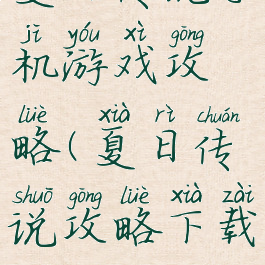 jī yóu xì gōng
机游戏攻
lüè xià rì chuán
略(夏日传
shuō gōng lüè xià zài
说攻略下载